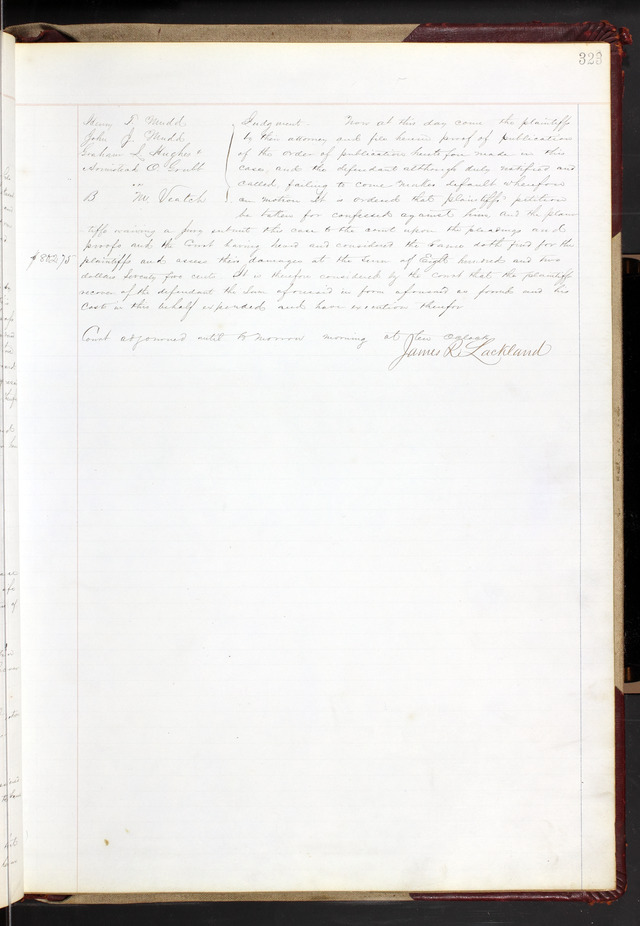 323
Henry T. Mudd
John J. Mudd
Graham L Hughes &
A O Grubb
vs
B M. Veatch
Judgment. Now at this day come the plaintiffs
by their attorney and file herein proof of publication
of the order of publication heretofore made in this
case, and the defendant although duly notified and
called failing to come makes default wherefore
on motion it is ordered that plaintiffs petition
be taken for confessed against him and the plain
tiffs waiving a jury submit this case to the court upon the pleadings and
proofs and the Court having heard and considered the same doth find for the
$802.75 plaintiffs and assess their damages at the sum of Eight hundred and two
dollars Seventy five cents. It is therefore considered by the Court that the plaintiffs
recover of the defendant the sum aforesaid in form aforesaid as found and his
costs in this behalf expended and have execution therefor
Court adjourned until to morrow morning at ten Oclock
James R Lackland